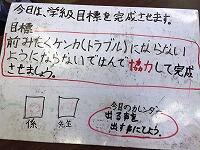 今日は、学級目標を完成させます。
目標
前みたくケンカ(トラブル)にならない
ようにならないではんで協力して完成
させましょう。
係
先生
今日のカレンダー
出る声を
出す声にしよう。